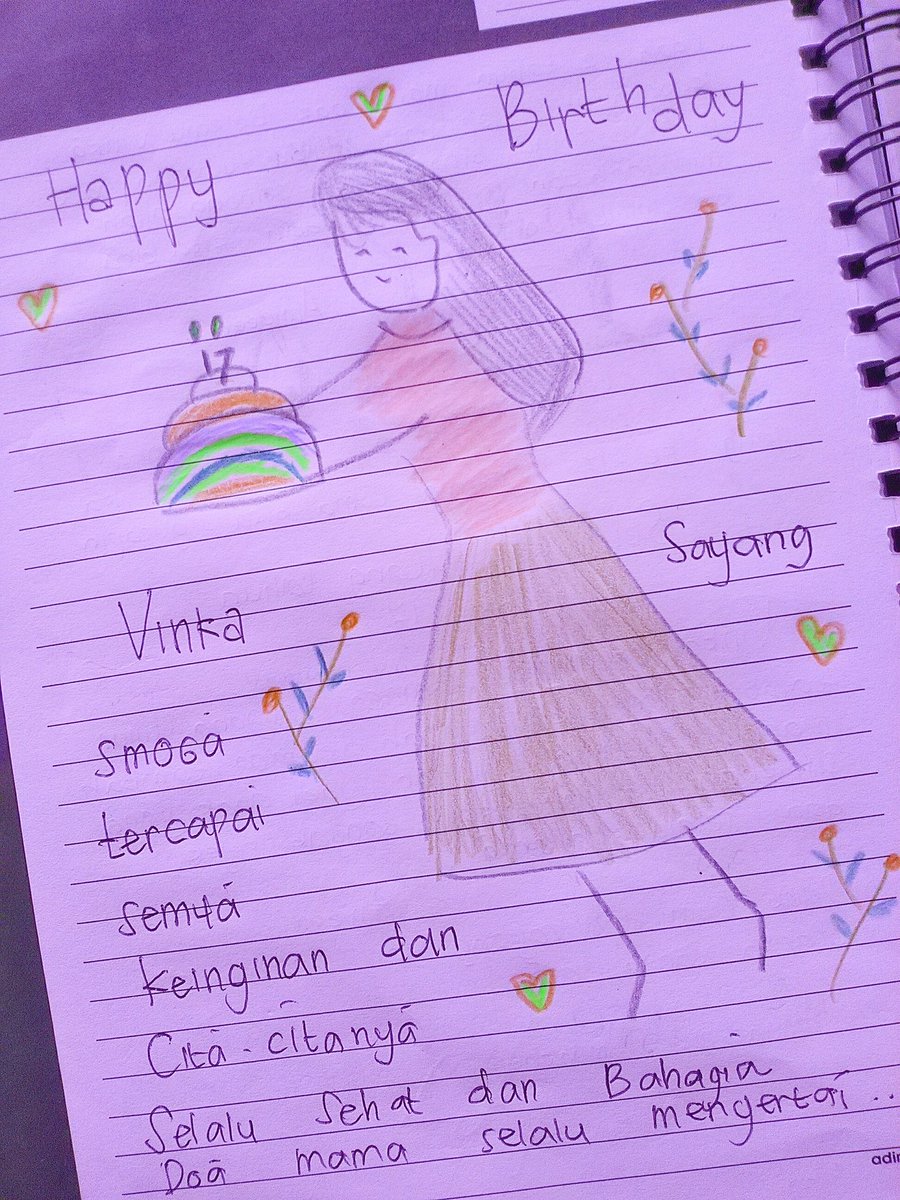 Happy Birthday
17
Vinka Sayang
smoga
tercapai
semua
keinginan dan
Cita-citanya
Selalu Sehat dan Bahagia
Doa mama selalu mengertai..